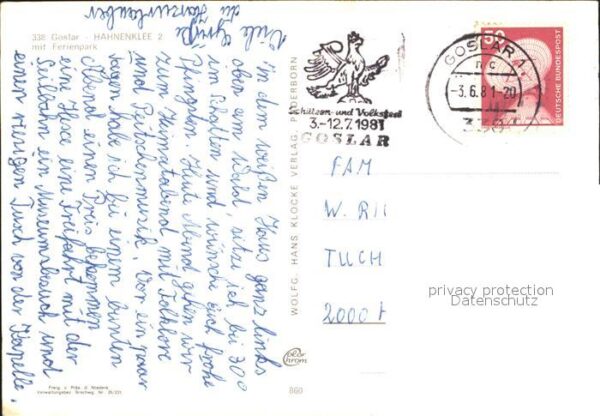 338 Goslar - HAHNENKLEE 2
mit Ferienpark
In dem weißen Haus ganz links
oben Wald, sitze ich bei 30°
im Schatten und wünsche Euch frohe
Pfingsten. Heute Abend gehen wir
zum Heimatabend mit Folklore
und Peitschenmusik. Vor ein paar
Tagen hab ich bei einem bunten
Abend einen Preis bekommen
eine Hexe eine Freifahrt mit der
Seilbahn ein Museumsbesuch und
einen riesigen Tusch von der Kapelle.
Viele Grüße
die Harzurlauber
WOLFG. HANS KLOCKE VERLAG PADERBORN
Schützen- und Volksfest
3.-12.7.1981
GOSLAR
GOSLAR 1
nc
-3.6.81-20
338
50
DEUTSCHE BUNDESPOST
FAM
W.
TUCH
2000
privacy protection
Datenschutz
color
chrom
860
Freig. d. Präs. d. Nieders.